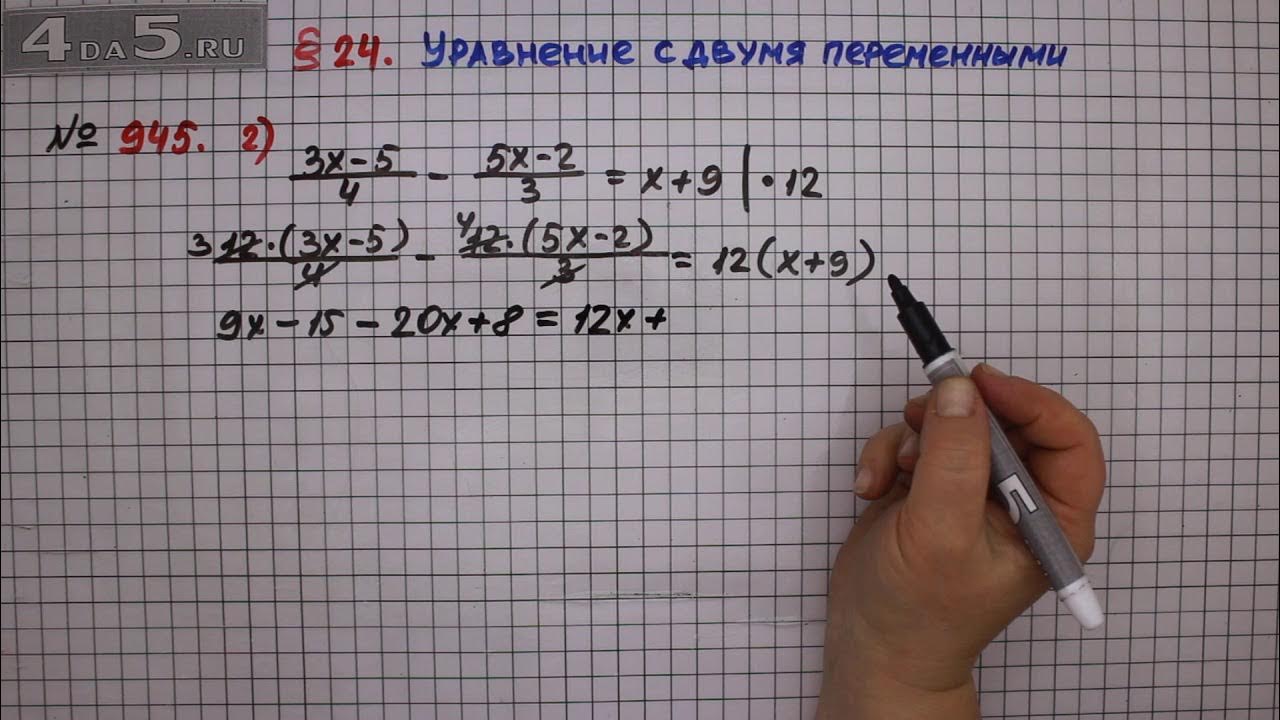 4DA5.RU
§ 24. Уравнение с двумя переменными
№ 945. 2)
(3x-5)/4 - (5x-2)/3 = x+9 | · 12
3 12·(3x-5)/4 - 4 12·(5x-2)/3 = 12(x+9)
9x-15-20x+8=12x+